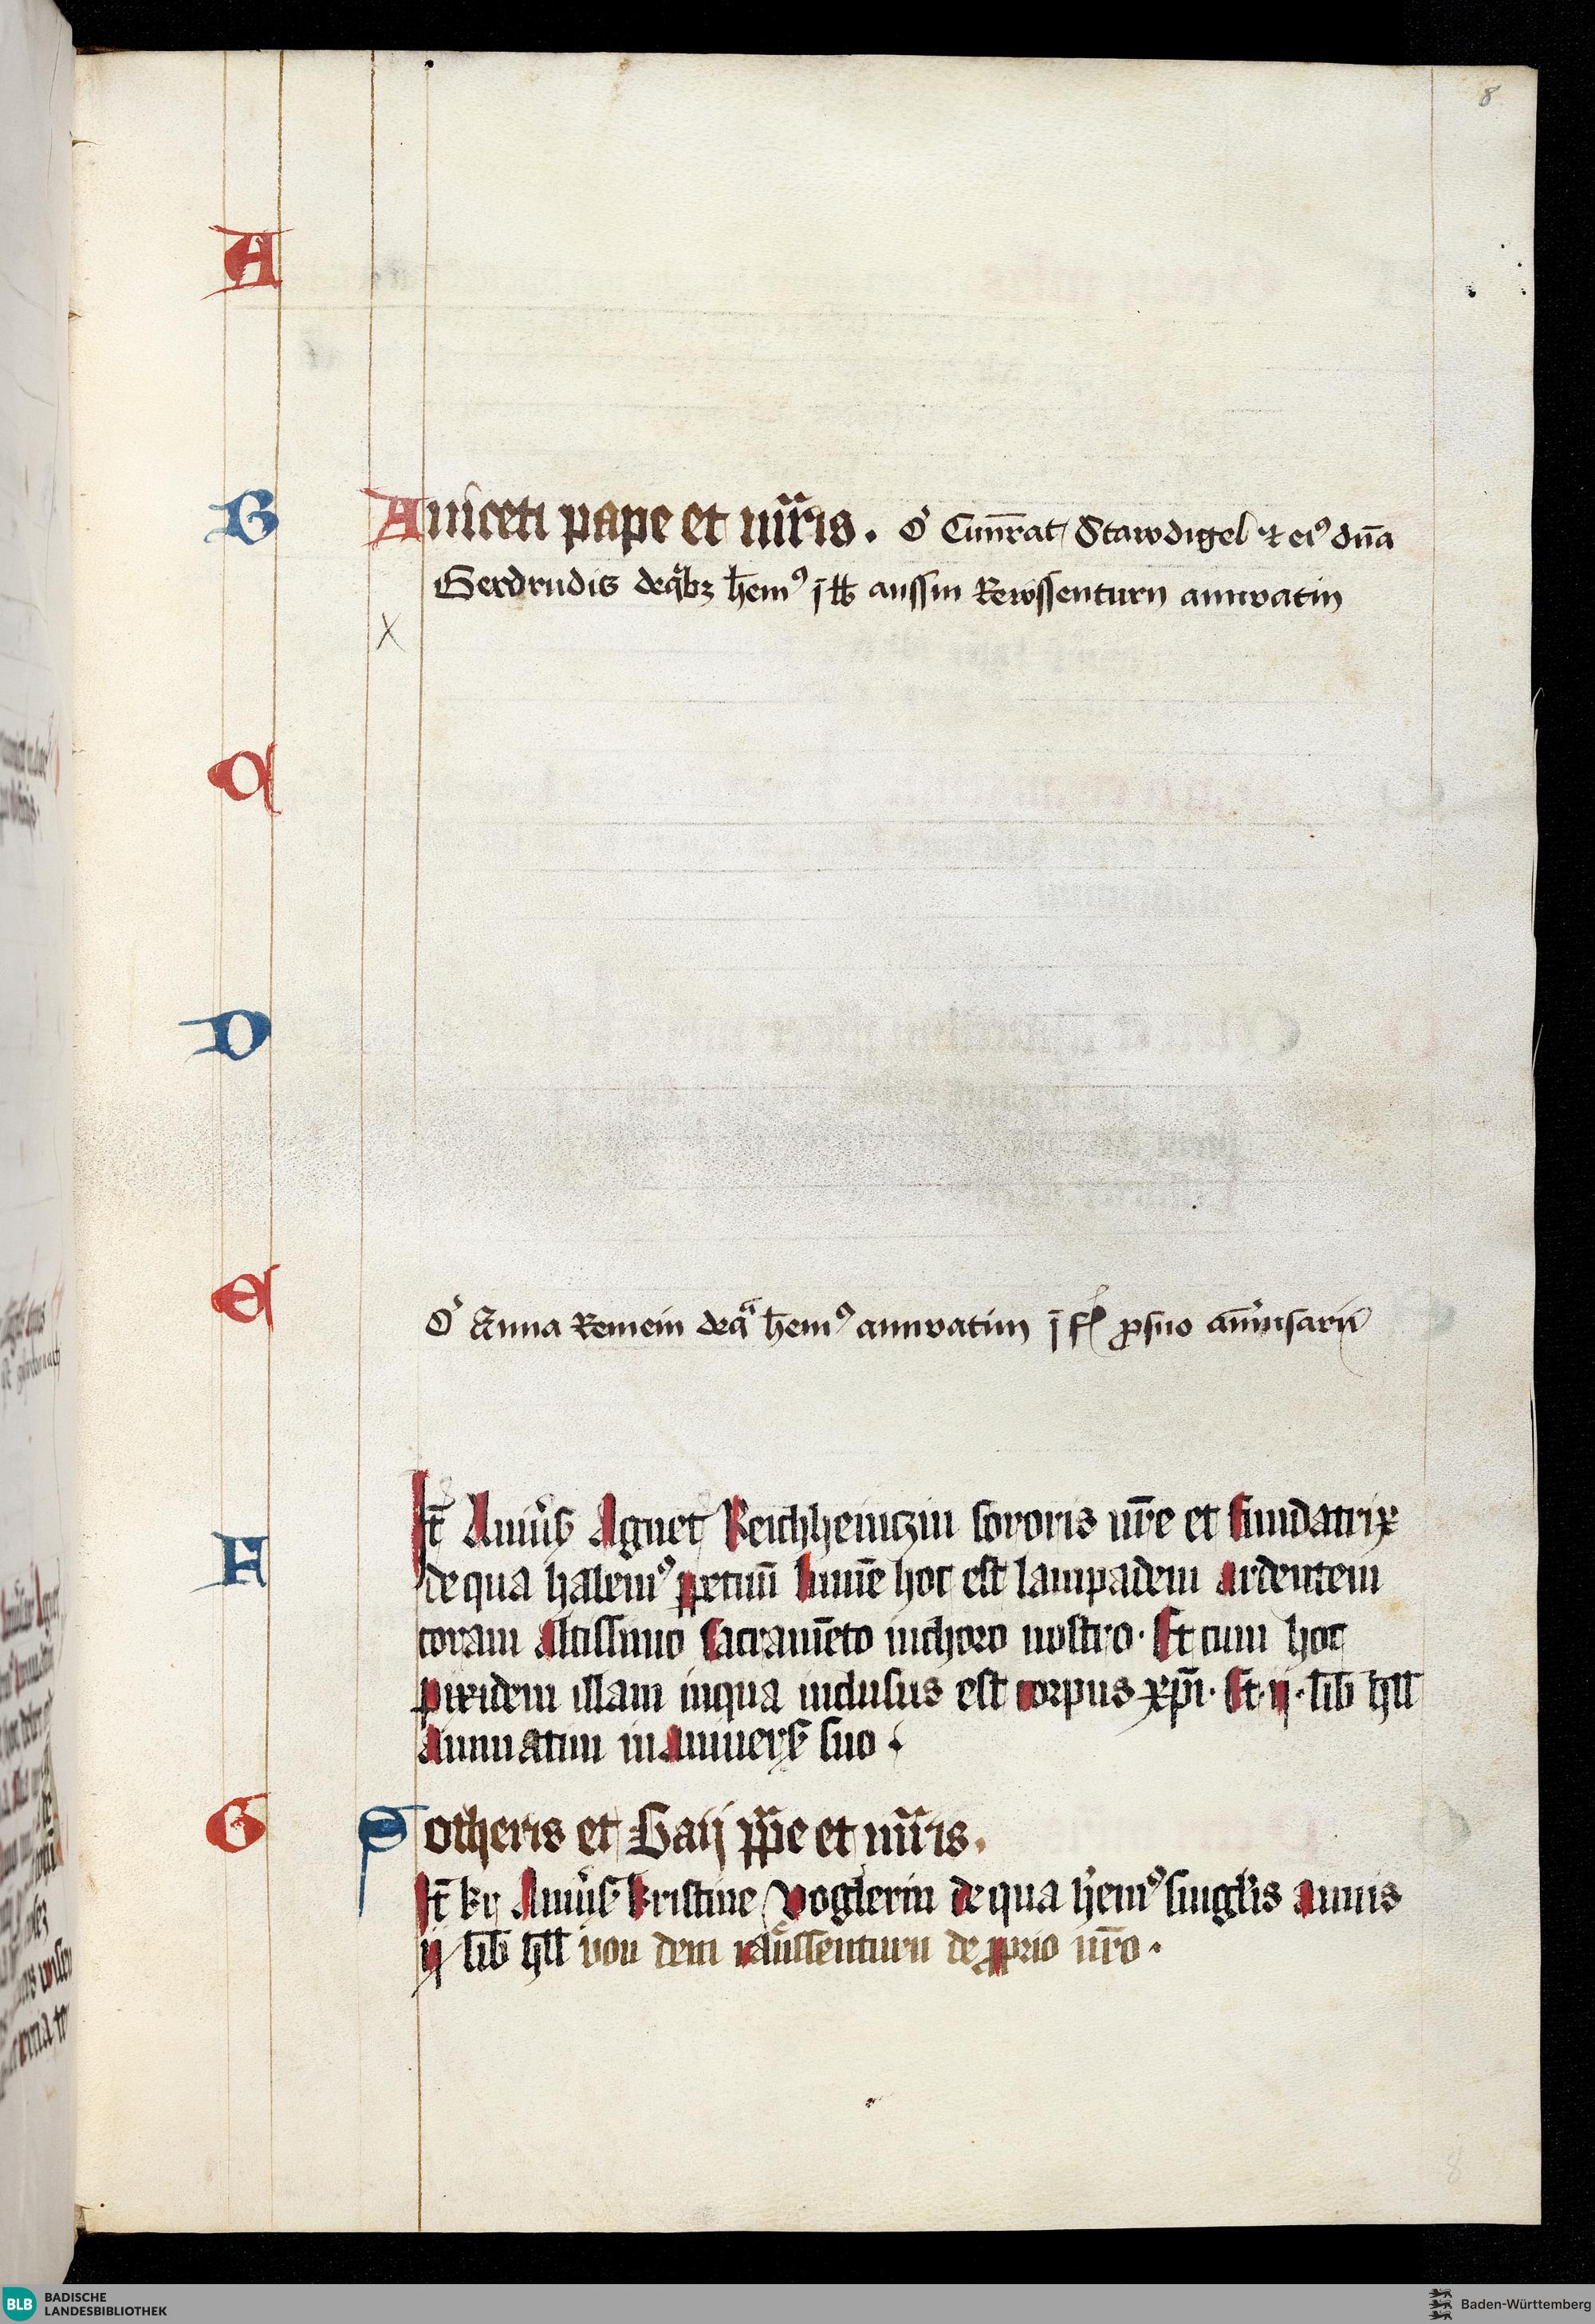 8
A
B
Aniceti pape et mr̄is. O' Cunr̄at Stawdigel et ei9 dn̄a
Gerdrudis de qͣbz hem9 j lb aussm Rewssenturn annuatim
X
C
D
E
O' Anna Remein de qͣ hem9 annuatim j fl ꝓ suo
F
It̄ Anniu's Agnet Reichheinczin sororis nr̄e et fundatrix
de qua habem9 ꝑpetuū lumē hoc est lampadem ardentem
coram Altissimo sacramēto in choro nostro. Et cum hoc
pixidem illam in qua inclusus est corpus xp̄i. Et ij. lib hll
Annuatim in Anniuers suo.
G
Sotheris et Gaij ꝑp̄e et mr̄is.
It̄ Anniu's Kristine Voglerin de qua hem9 singl'is annis
ij lib hll von dem raüssenturn de ꝓprio nr̄o.
8
BLB BADISCHE
LANDESBIBLIOTHEK
Baden-Württemberg